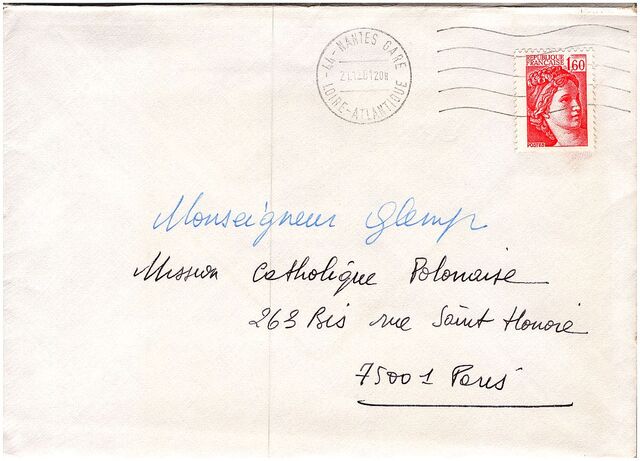 44-NANTES GARE
LOIRE-ATLANTIQUE
REPUBLIQUE
FRANÇAISE
1,60
POSTES
Monseigneur Glemp
Mission Catholique Polonaise
263 Bis rue Saint Honoré
75001 Paris